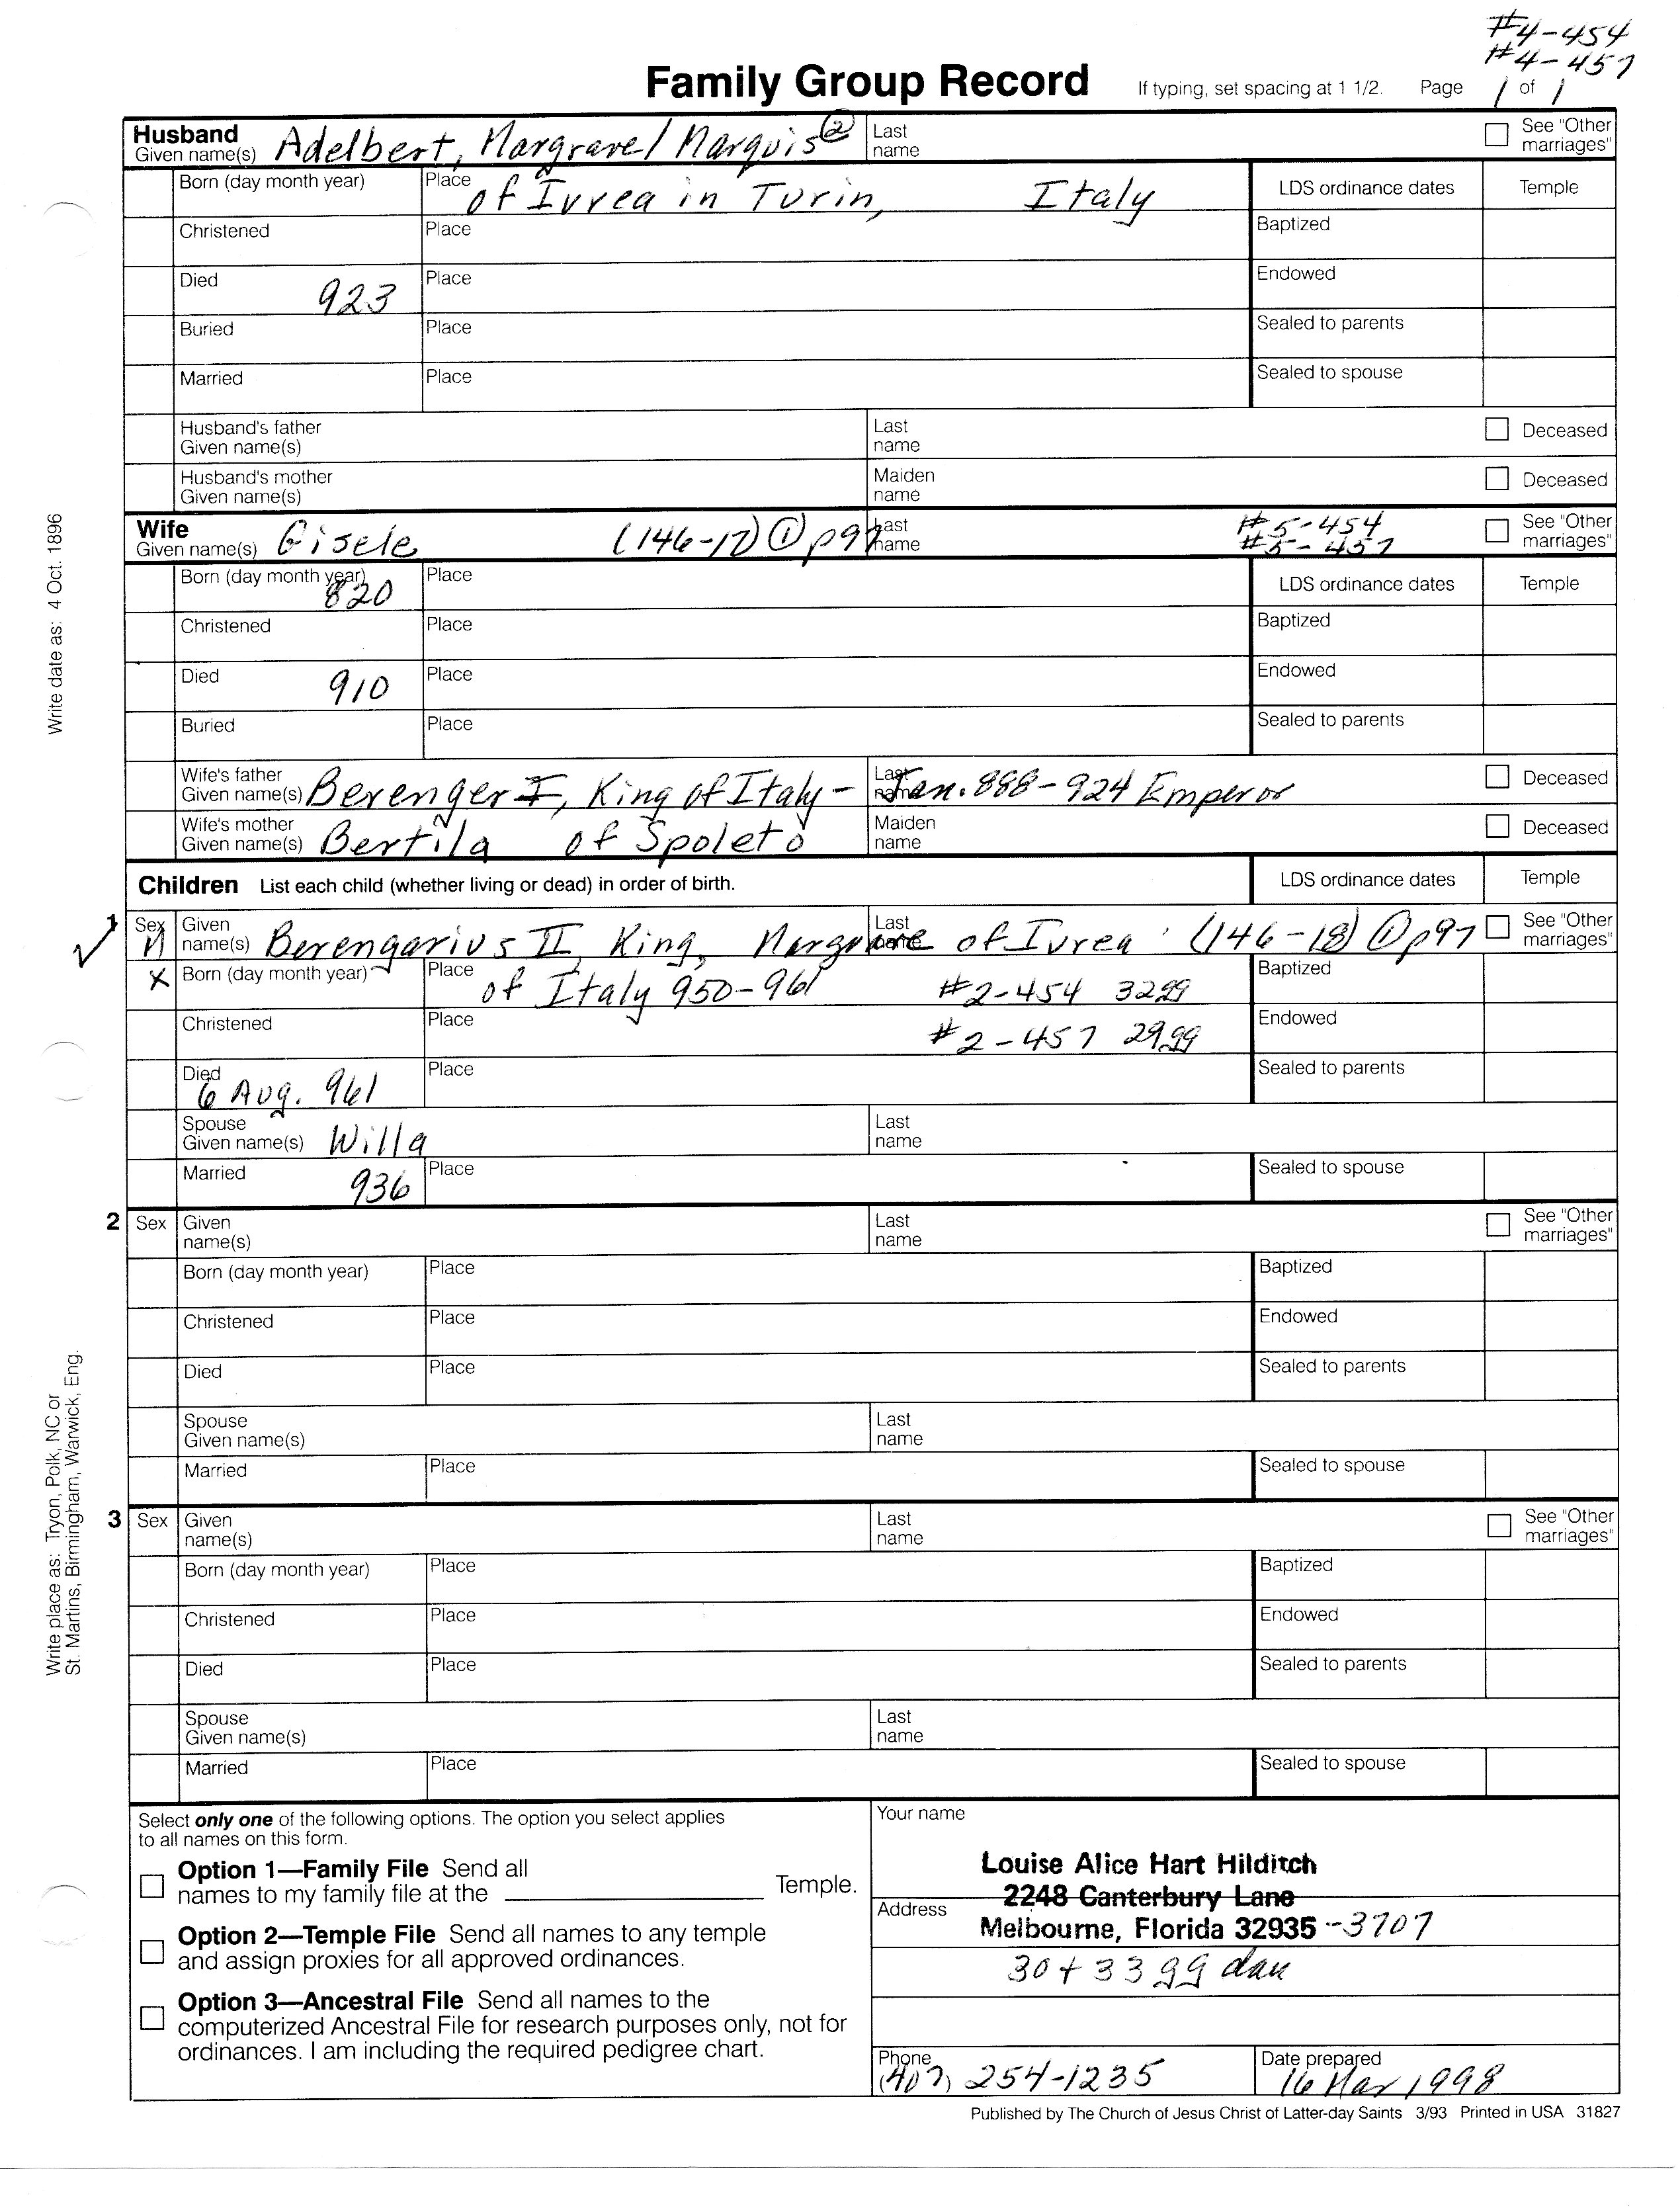 #4-454
#4-457
Family Group Record If typing, set spacing at 1 1/2. Page 1 of 1
Husband Given name(s) Adelbert, Margrave/Marquis ② Last name See "Other marriages"
Born (day month year) Place of Ivrea in Turin, Italy LDS ordinance dates Temple
Christened Place Baptized
Died 923 Place Endowed
Buried Place Sealed to parents
Married Place Sealed to spouse
Husband's father Given name(s) Last name Deceased
Husband's mother Given name(s) Maiden name Deceased
Wife Given name(s) Gisele (146-17) ① p97 Last name #5-454 #5-457 See "Other marriages"
Born (day month year) 820 Place LDS ordinance dates Temple
Christened Place Baptized
Died 910 Place Endowed
Buried Place Sealed to parents
Wife's father Given name(s) Berenger I, King of Italy - Last name Jan. 888-924 Emperor Deceased
Wife's mother Given name(s) Bertila of Spoleto Maiden name Deceased
Children List each child (whether living or dead) in order of birth. LDS ordinance dates Temple
1 Sex M Given name(s) Berengarius II, King, Margrave of Ivrea Last name (146-18) ① p97 See "Other marriages"
X Born (day month year) Place of Italy 950-961 #2-454 32gg Baptized
Christened Place #2-457 29gg Endowed
Died 6 Aug. 961 Place Sealed to parents
Spouse Given name(s) Willa Last name
Married 936 Place Sealed to spouse
2 Sex Given name(s) Last name See "Other marriages"
Born (day month year) Place Baptized
Christened Place Endowed
Died Place Sealed to parents
Spouse Given name(s) Last name
Married Place Sealed to spouse
3 Sex Given name(s) Last name See "Other marriages"
Born (day month year) Place Baptized
Christened Place Endowed
Died Place Sealed to parents
Spouse Given name(s) Last name
Married Place Sealed to spouse
Select only one of the following options. The option you select applies
to all names on this form.
Option 1—Family File Send all
names to my family file at the Temple.
Option 2—Temple File Send all names to any temple
and assign proxies for all approved ordinances.
Option 3—Ancestral File Send all names to the
computerized Ancestral File for research purposes only, not for
ordinances. I am including the required pedigree chart.
Your name
Louise Alice Hart Hilditch
2248 Canterbury Lane
Address
Melbourne, Florida 32935 -3707
30+33 gg dau
Phone (407) 254-1235 Date prepared 16 Mar 1998
Published by The Church of Jesus Christ of Latter-day Saints 3/93 Printed in USA 31827
Write date as: 4 Oct. 1896
Write place as: Tryon, Polk, NC or
St. Martins, Birmingham, Warwick, Eng.